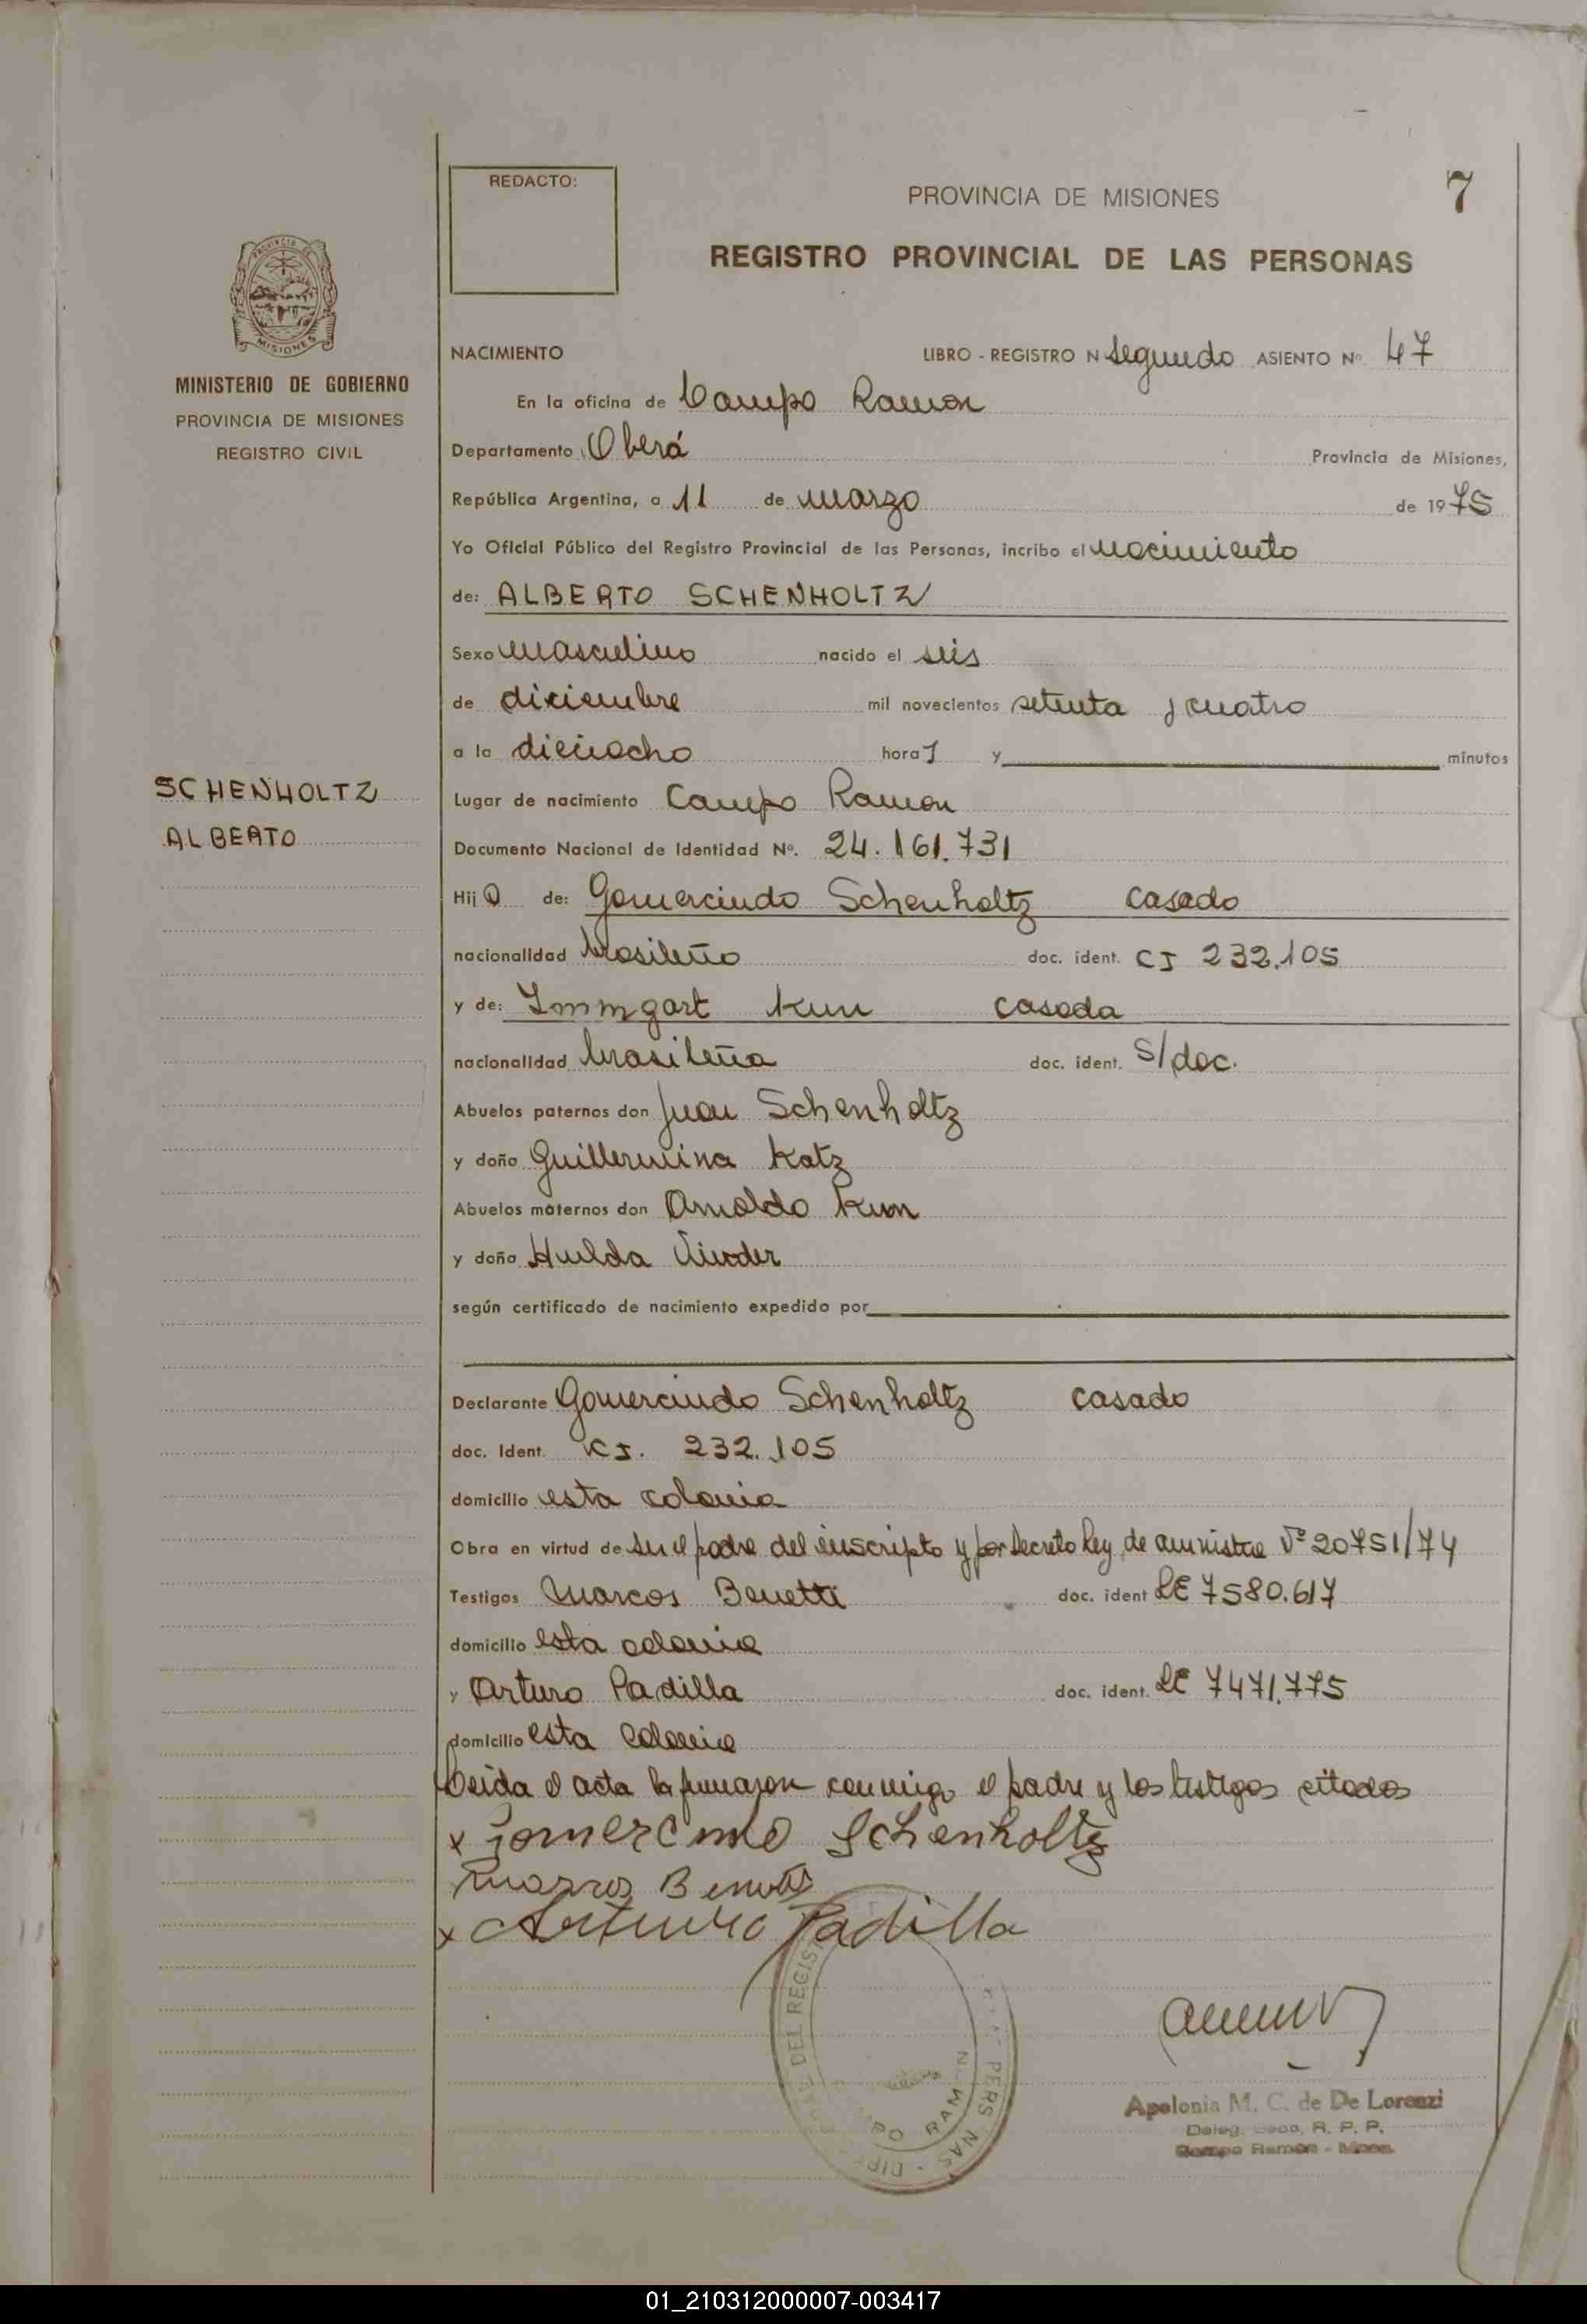 REDACTO:
PROVINCIA DE MISIONES
7
REGISTRO PROVINCIAL DE LAS PERSONAS
PROVINCIA DE
MISIONES
MINISTERIO DE GOBIERNO
PROVINCIA DE MISIONES
REGISTRO CIVIL
NACIMIENTO LIBRO - REGISTRO N Segundo ASIENTO Nº 47
En la oficina de Campo Ramon
Departamento Oberá Provincia de Misiones,
República Argentina, a 11 de marzo de 1975
Yo Oficial Público del Registro Provincial de las Personas, incribo el nacimiento
de: ALBERTO SCHENHOLTZ
Sexo masculino nacido el seis
de diciembre mil novecientos setenta y cuatro
a la dieciocho hora s y minutos
SCHENHOLTZ
ALBERTO
Lugar de nacimiento Campo Ramon
Documento Nacional de Identidad Nº. 24.161.731
Hijo de: Gomercindo Schenholtz casado
nacionalidad brasileño doc. ident. CI 232.105
y de: Immgart Kun casada
nacionalidad brasileña doc. ident. S/doc.
Abuelos paternos don Juan Schenholtz
y doña Guillermina Katz
Abuelos maternos don Arnoldo Kun
y doña Hulda
según certificado de nacimiento expedido por
Declarante Gomercindo Schenholtz casado
doc. Ident. CI. 232.105
domicilio esta colonia
Obra en virtud de ser el padre del inscripto y por decreto ley de amnistia Nº 20751/74
Testigos Marcos Benetti doc. ident LE 7580.617
domicilio esta colonia
y Arturo Padilla doc. ident. LE 7471.775
domicilio esta colonia
Leida el acta la firmaron conmigo el padre y los testigos citados
x Gomercindo Schenholtz
Marcos Benetti
x Arturo Padilla
DEL REGIS
PERS NAS
RAM N
Apolonia M. C. de De Lorenzi
Deleg. R. P. P.
Campo Ramón - Mnes.
01_210312000007-003417